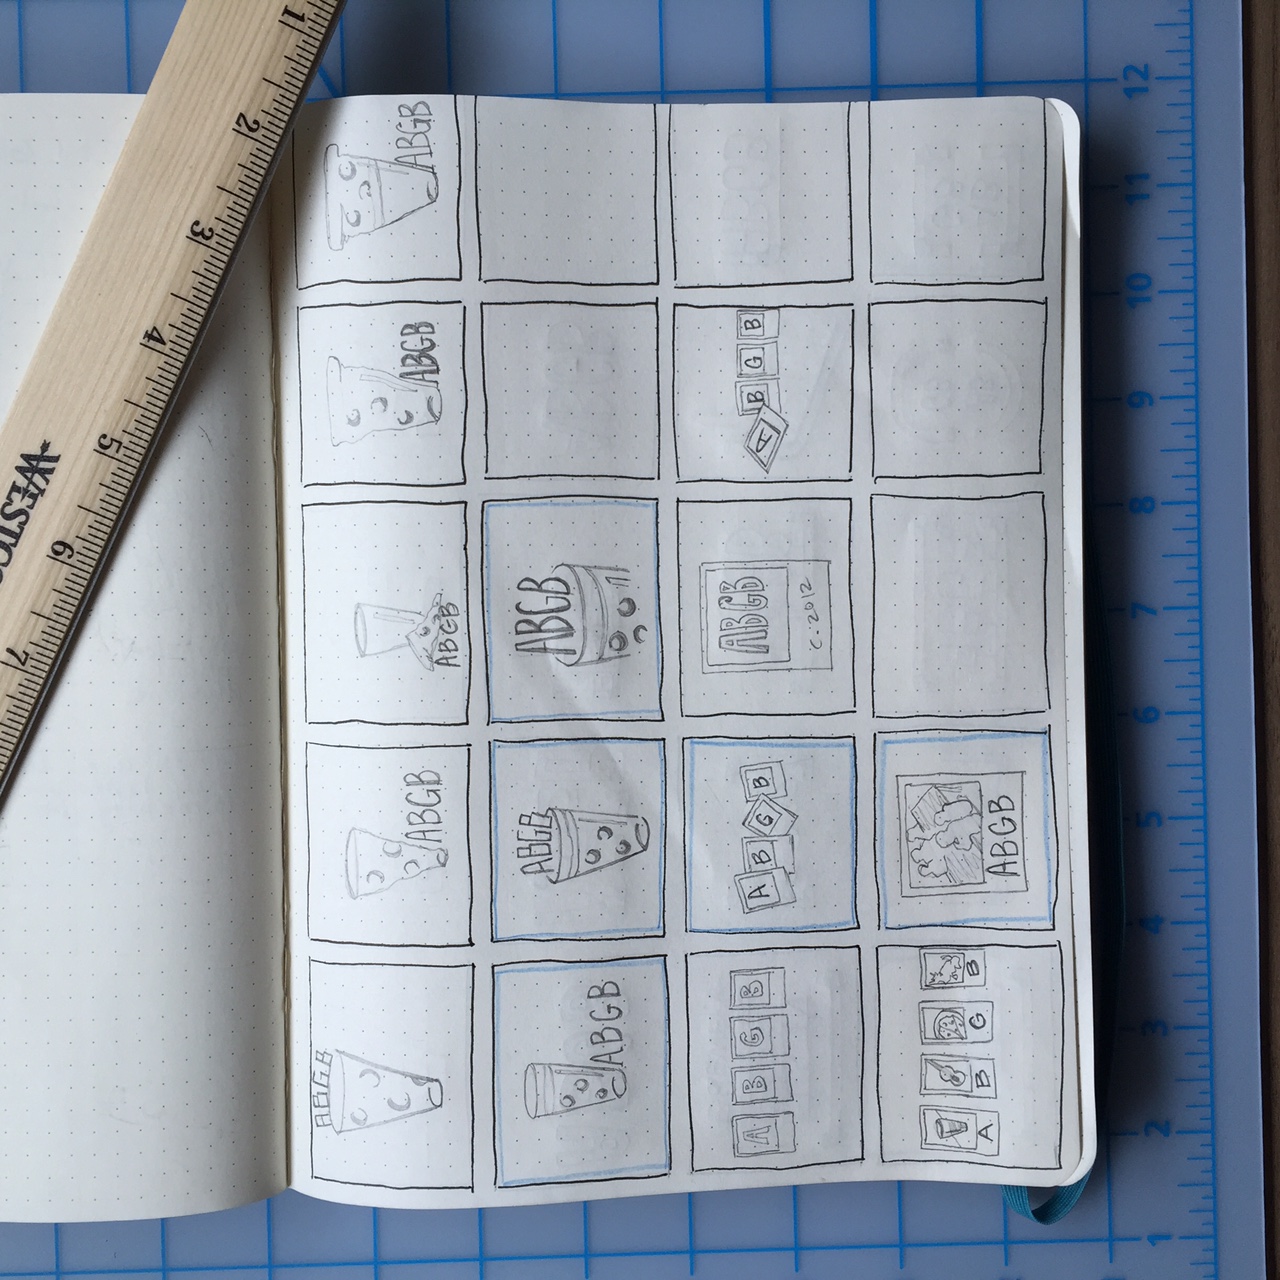 WESTCO
7
6
5
4
3
2
1
ABGB
ABGB
ABGB
ABGB
ABGB
ABGB
ABGB
ABGB
A B G B
A B G B
ABGB
C. 2012
A B G B
A B G B
ABGB
1 2 3 4 5 6 7 8 9 10 11 12